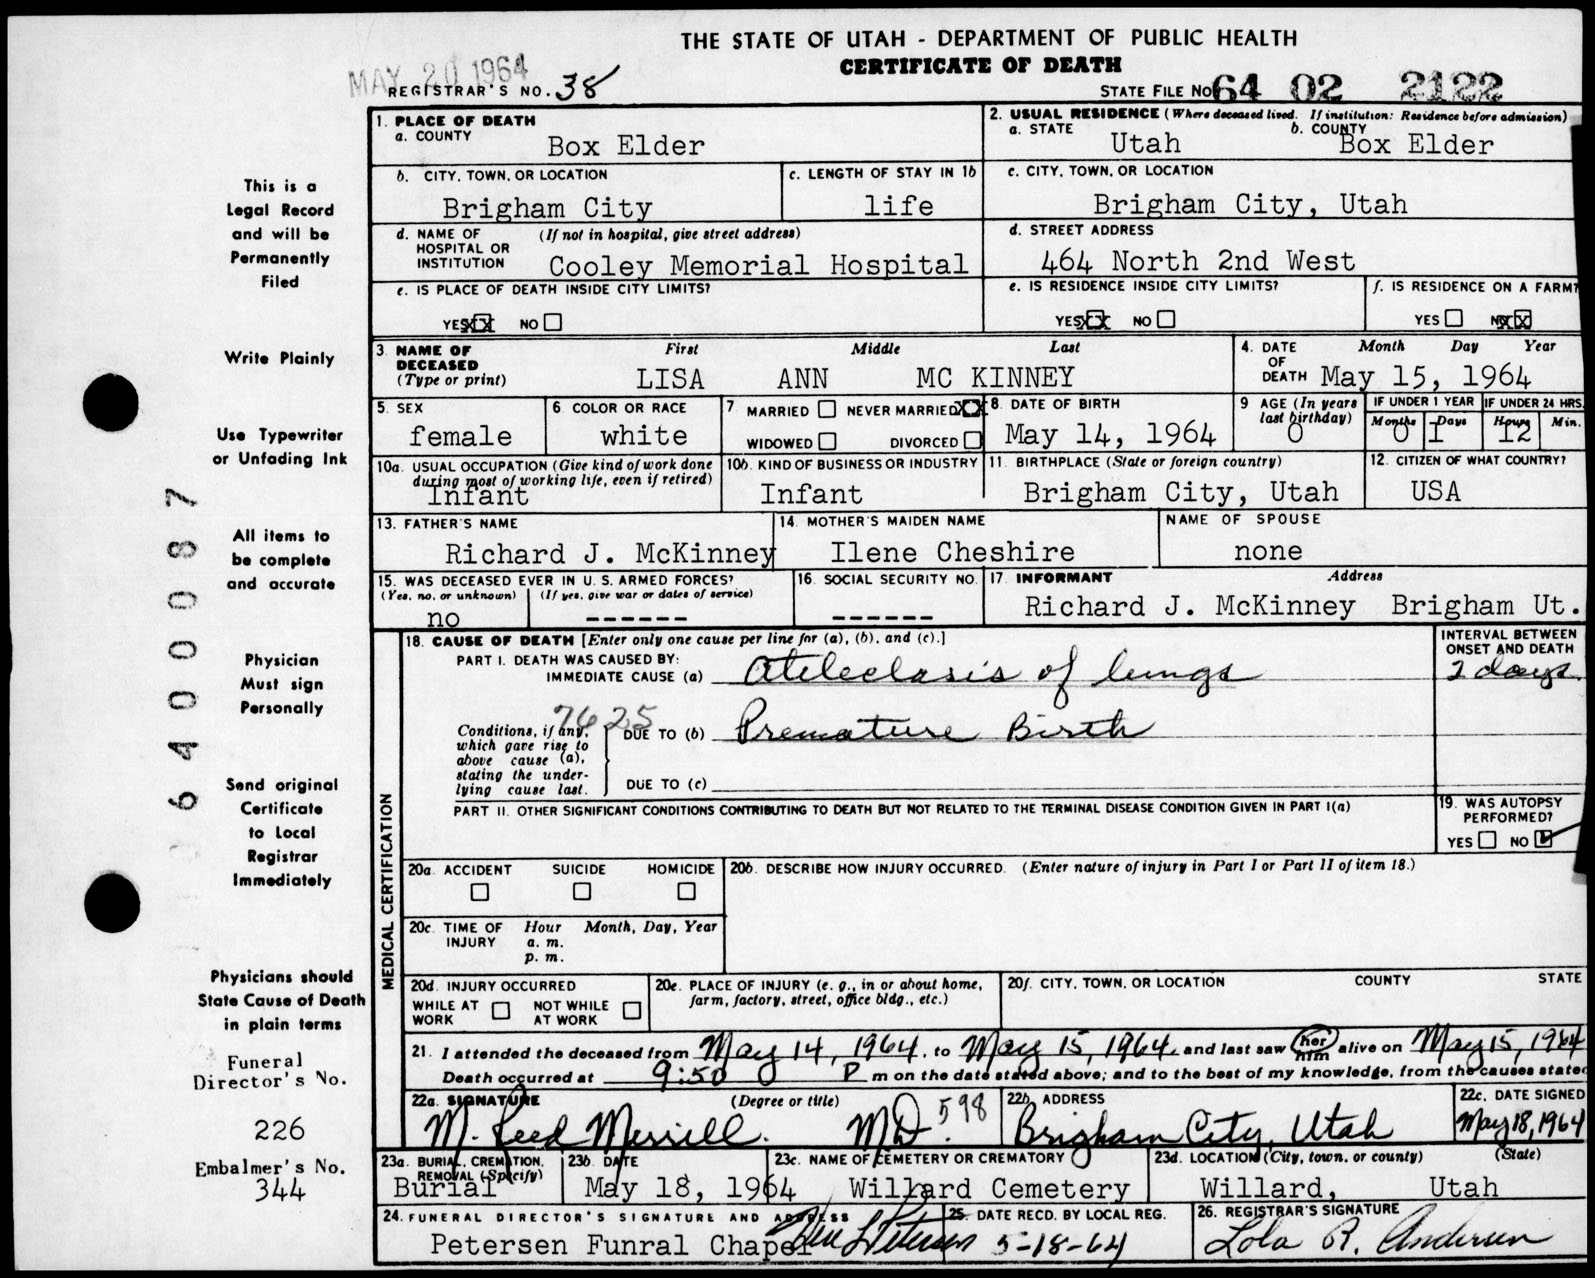 THE STATE OF UTAH - DEPARTMENT OF PUBLIC HEALTH
CERTIFICATE OF DEATH
MAY 20 1964
REGISTRAR'S NO. 38
STATE FILE No 64 02 2122
1. PLACE OF DEATH
a. COUNTY
Box Elder
2. USUAL RESIDENCE (Where deceased lived. If institution: Residence before admission)
a. STATE
Utah
b. COUNTY
Box Elder
b. CITY, TOWN, OR LOCATION
Brigham City
c. LENGTH OF STAY IN 1b
life
c. CITY, TOWN, OR LOCATION
Brigham City, Utah
d. NAME OF HOSPITAL OR INSTITUTION
(If not in hospital, give street address)
Cooley Memorial Hospital
d. STREET ADDRESS
464 North 2nd West
e. IS PLACE OF DEATH INSIDE CITY LIMITS?
YES XX NO
e. IS RESIDENCE INSIDE CITY LIMITS?
YES XX NO
f. IS RESIDENCE ON A FARM?
YES NO XX
3. NAME OF DECEASED
(Type or print)
First Middle Last
LISA ANN MC KINNEY
4. DATE OF DEATH
Month Day Year
May 15, 1964
5. SEX
female
6. COLOR OR RACE
white
7 MARRIED NEVER MARRIED XX
WIDOWED DIVORCED
8. DATE OF BIRTH
May 14, 1964
9 AGE (In years last birthday)
0
IF UNDER 1 YEAR
Months 0 Days 1
IF UNDER 24 HRS.
Hours 12 Min.
10a. USUAL OCCUPATION (Give kind of work done during most of working life, even if retired)
Infant
10b. KIND OF BUSINESS OR INDUSTRY
Infant
11. BIRTHPLACE (State or foreign country)
Brigham City, Utah
12. CITIZEN OF WHAT COUNTRY?
USA
13. FATHER'S NAME
Richard J. McKinney
14. MOTHER'S MAIDEN NAME
Ilene Cheshire
NAME OF SPOUSE
none
15. WAS DECEASED EVER IN U. S. ARMED FORCES?
(Yes, no, or unknown) (If yes, give war or dates of service)
no ------
16. SOCIAL SECURITY NO.
------
17 INFORMANT Address
Richard J. McKinney Brigham Ut.
MEDICAL CERTIFICATION
18. CAUSE OF DEATH [Enter only one cause per line for (a), (b), and (c).]
INTERVAL BETWEEN ONSET AND DEATH
PART I. DEATH WAS CAUSED BY:
IMMEDIATE CAUSE (a) Ateleclasis of lungs
2 days
7625
Conditions, if any, which gave rise to above cause (a), stating the underlying cause last.
DUE TO (b) Premature Birth
DUE TO (c)
PART II. OTHER SIGNIFICANT CONDITIONS CONTRIBUTING TO DEATH BUT NOT RELATED TO THE TERMINAL DISEASE CONDITION GIVEN IN PART I(a)
19. WAS AUTOPSY PERFORMED?
YES NO
20a. ACCIDENT SUICIDE HOMICIDE
20b. DESCRIBE HOW INJURY OCCURRED. (Enter nature of injury in Part I or Part II of item 18.)
20c. TIME OF INJURY
Hour Month, Day, Year
a. m.
p. m.
20d. INJURY OCCURRED
WHILE AT WORK NOT WHILE AT WORK
20e. PLACE OF INJURY (e. g., in or about home, farm, factory, street, office bldg., etc.)
20f. CITY, TOWN, OR LOCATION COUNTY STATE
21. I attended the deceased from May 14, 1964, to May 15, 1964 and last saw her him alive on May 15, 1964
Death occurred at 9:50 P m on the date stated above; and to the best of my knowledge, from the causes stated
22a. SIGNATURE (Degree or title)
M. Reed Merrill. MD. 598
22b. ADDRESS
Brigham City, Utah
22c. DATE SIGNED
May 18, 1964
23a. BURIAL, CREMATION, REMOVAL (Specify)
Burial
23b. DATE
May 18, 1964
23c. NAME OF CEMETERY OR CREMATORY
Willard Cemetery
23d. LOCATION (City, town, or county) (State)
Willard, Utah
24. FUNERAL DIRECTOR'S SIGNATURE AND ADDRESS
Petersen Funral Chapel
25. DATE RECD. BY LOCAL REG.
5-18-64
26. REGISTRAR'S SIGNATURE
Lola R. Andersen
This is a
Legal Record
and will be
Permanently
Filed
Write Plainly
Use Typewriter
or Unfading Ink
All items to
be complete
and accurate
Physician
Must sign
Personally
Send original
Certificate
to Local
Registrar
Immediately
Physicians should
State Cause of Death
in plain terms
Funeral
Director's No.
226
Embalmer's No.
344
6400087